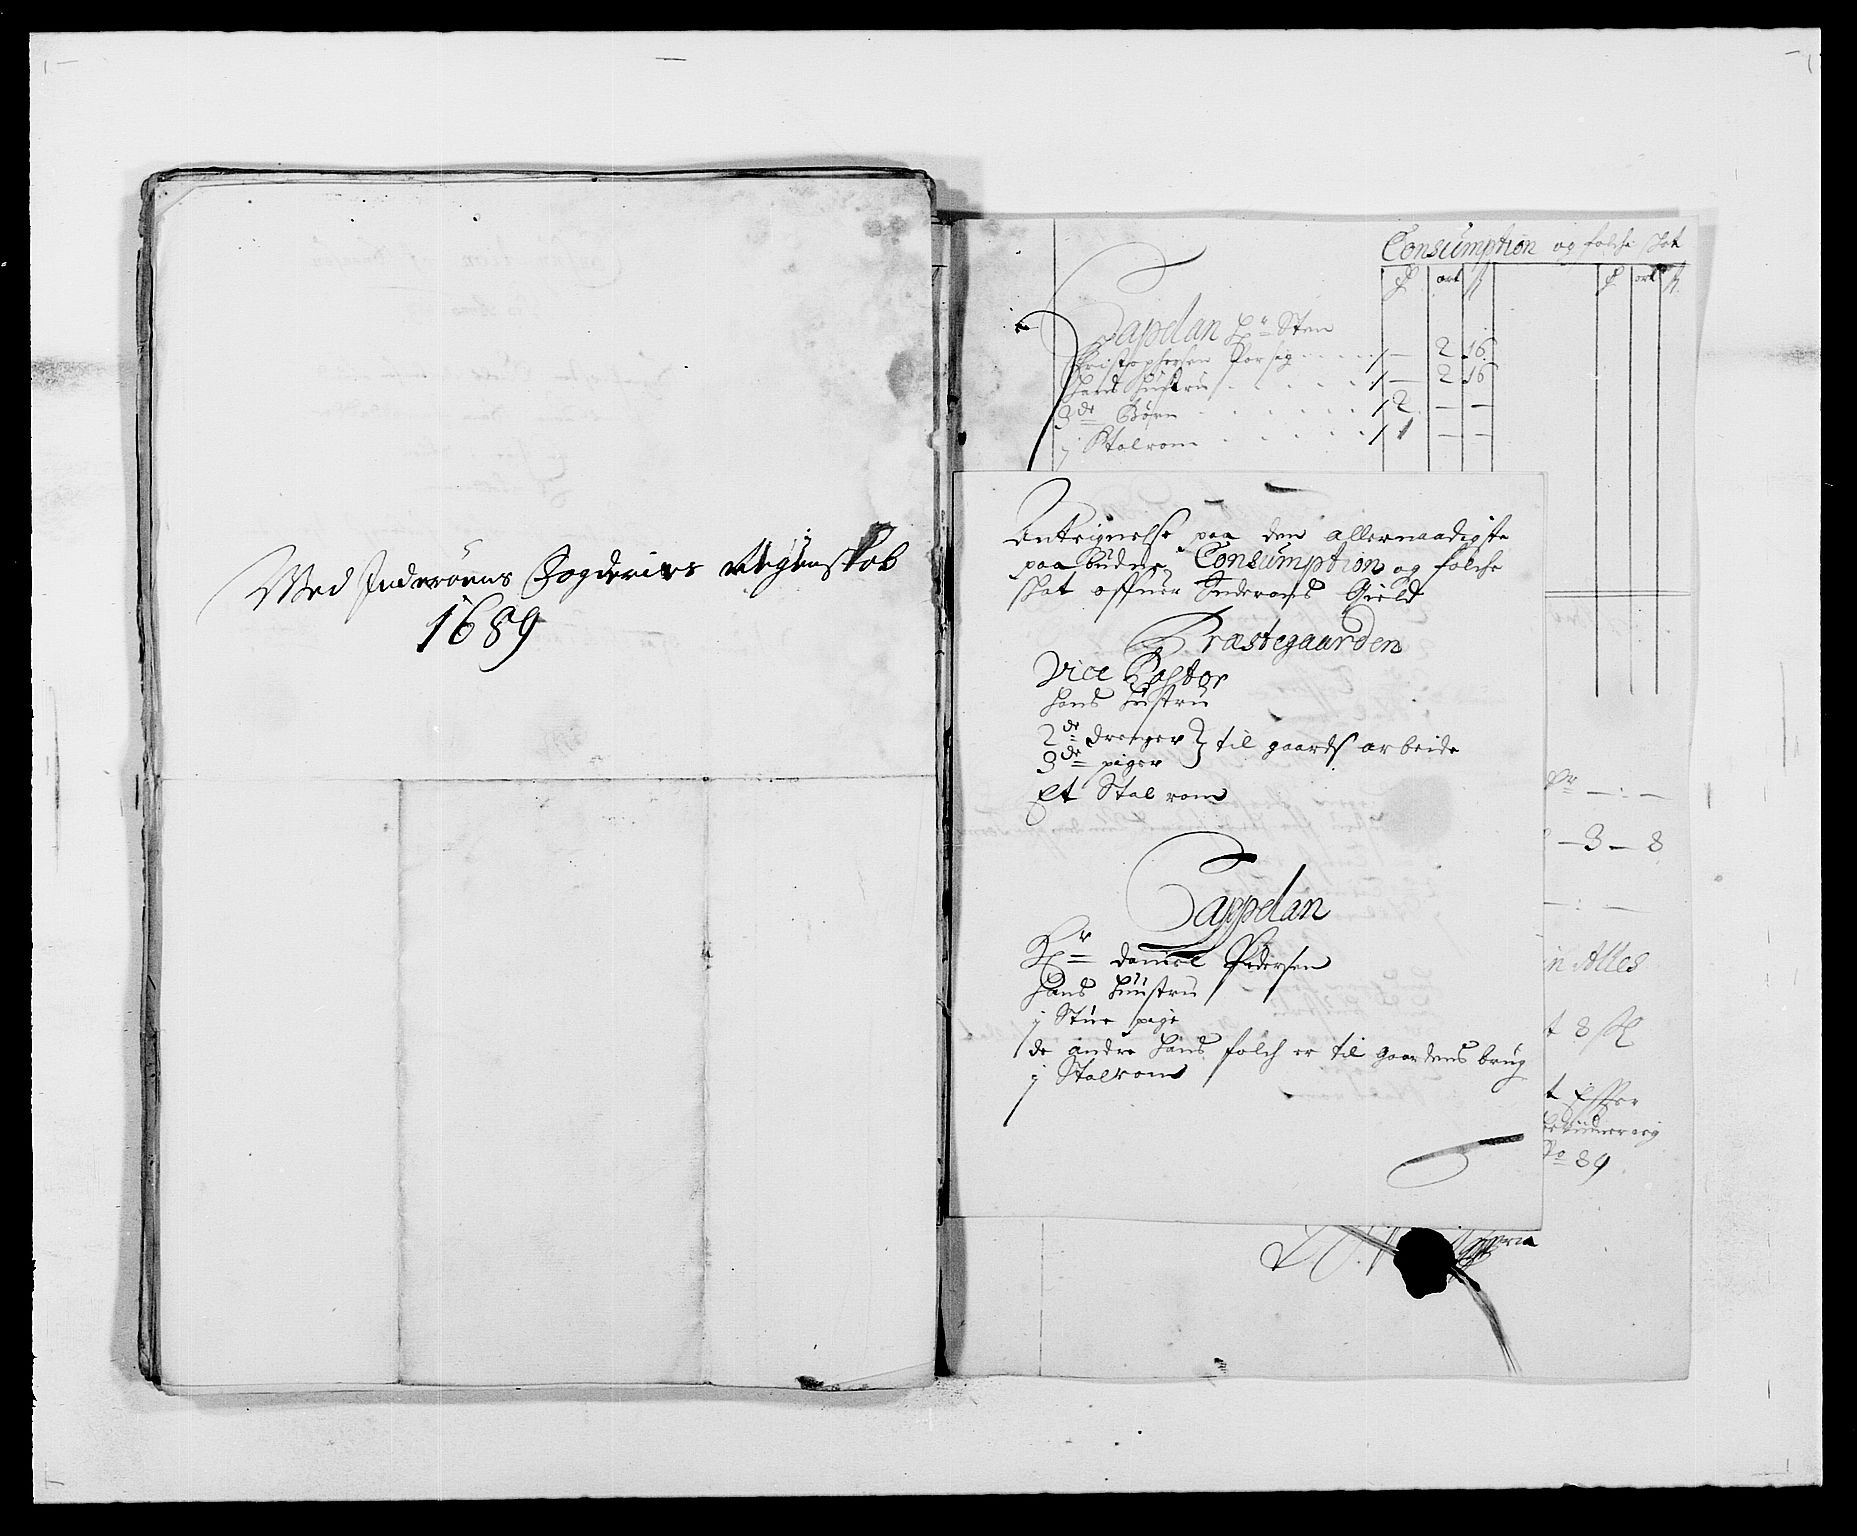 Med Inderøens Fogderies Regenskob
1689
Consumption og folche skat
ort ort
Capelan Hr Sten
Christophersen Porsig - 2 16
Hans Hustru - 2 16
3de Børn 2 - -
j Stalrom 1 - -
Anteignelse paa den allernaadigste
paabudne Consumption og folche
skat offuer Inderøens Gield
Præstegaarden
Vice Pastor
Hans Hustru
2de drenger til gaards arbeide
3de piger
Et Stalrom
Cappelan
Hr Daniel Pedersen
Hans Hüstru
j Stue pige
de andre Hans folch er til gaardens brug
j Stalrom
- 3 - 8
in Alles
t 8 sk
t Effter
Ao 89